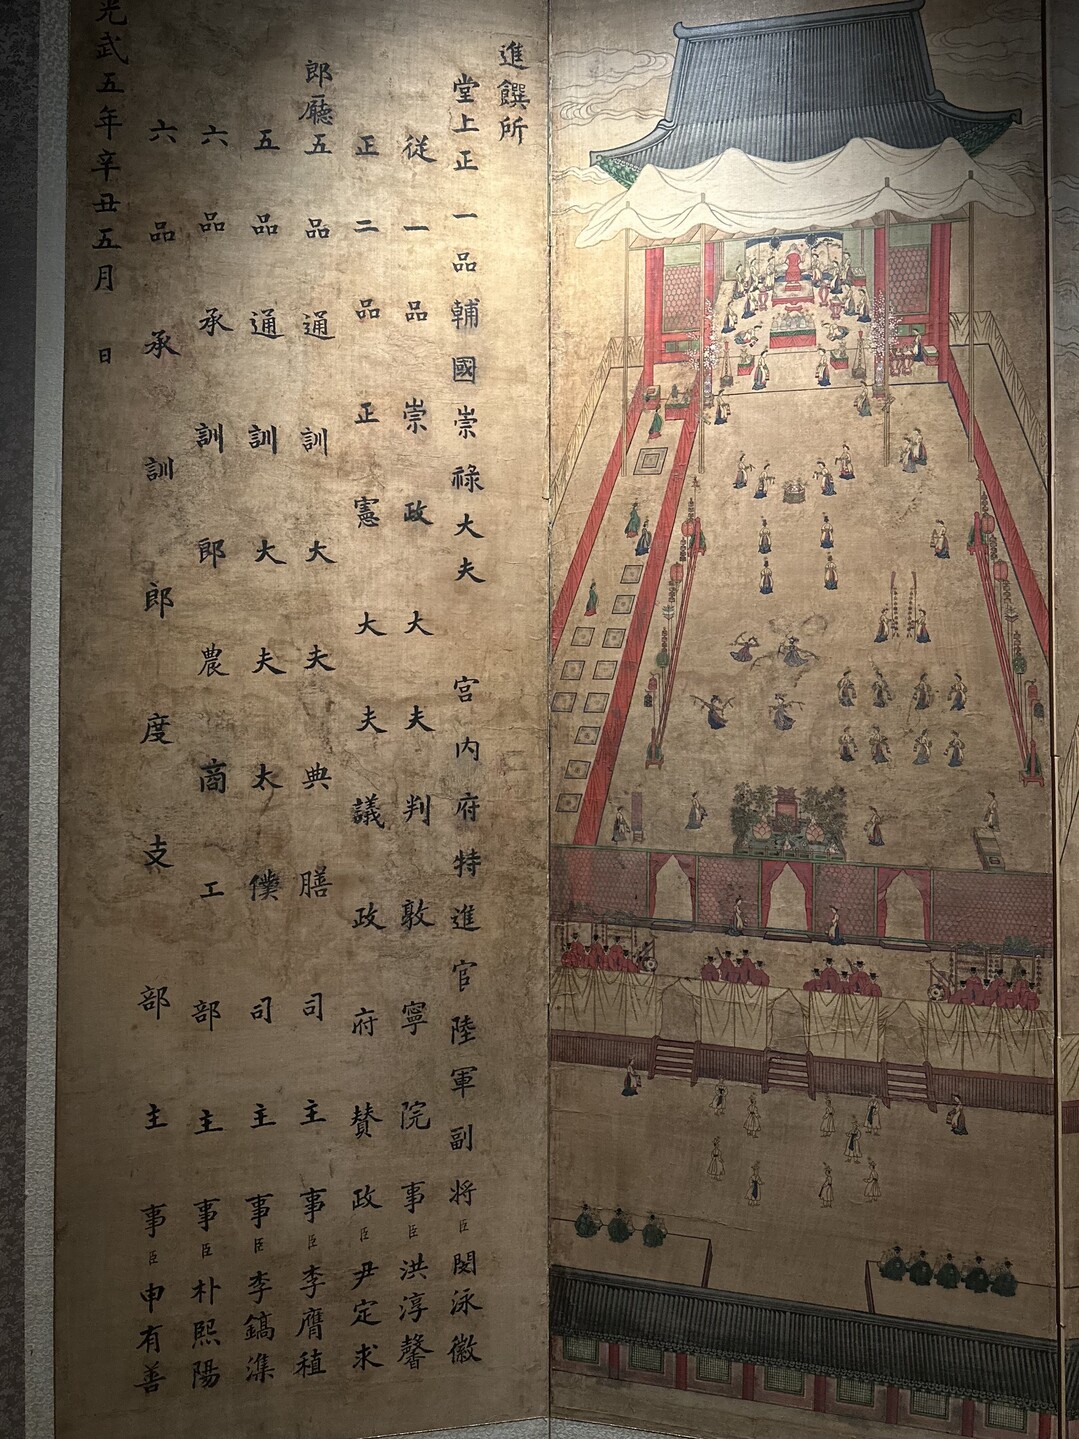 進饌所
堂上正一品輔國崇祿大夫 宮內府特進官陸軍副將臣閔泳徽
從一品崇政大夫判敦寧院事臣洪淳馨
正二品正憲大夫議政府贊政臣尹定求
郎廳五品通訓大夫典膳司主事臣李膺稙
五品通訓大夫太僕司主事臣李鎬潗
六品承訓郎農商工部主事臣朴熙陽
六品承訓郎度支部主事臣申有善
光武五年辛丑五月 日